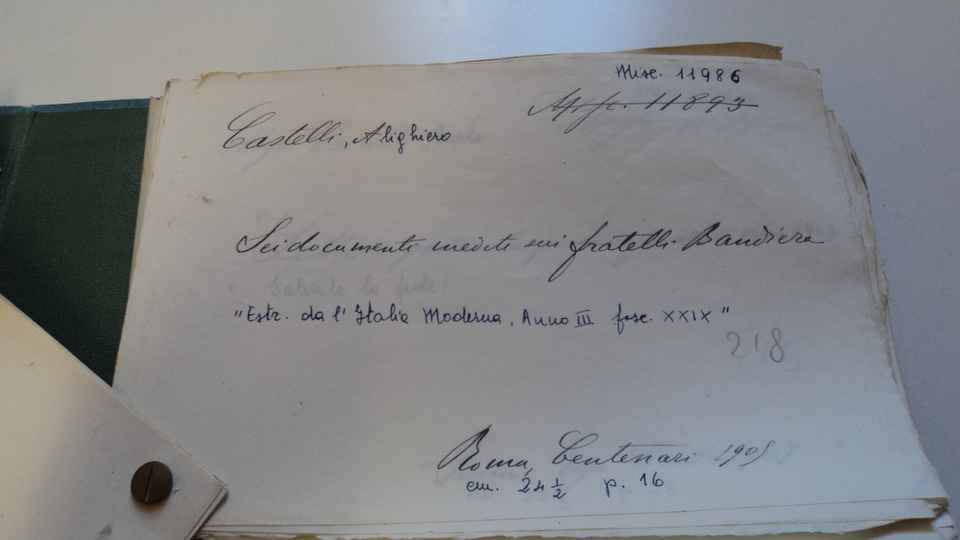 Misc. 11986
11893
Castelli, Alighiero
Sei documenti inediti sui fratelli Bandiera
"Estr. da l'Italia Moderna, Anno III fasc. XXIX"
218
Roma, Centenari 1905
cm. 24 1/2 p. 16